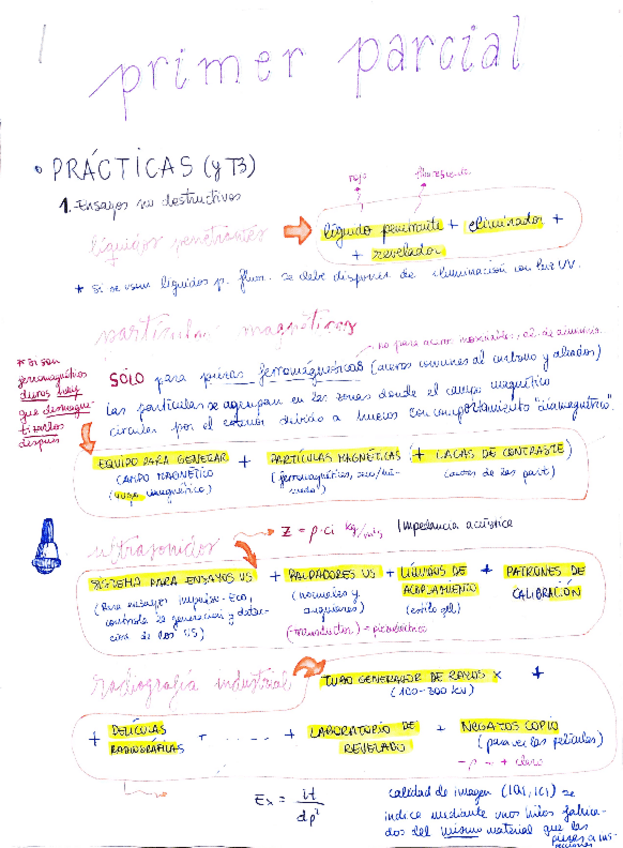 primer parcial
• PRÁCTICAS (y T3)
1. Ensayos no destructivos
rojo
fluorescente
líquidos penetrantes
líquido penetrante + eliminador +
+ revelador
* Si se usan líquidos p. fluor. se debe disponer de iluminación con luz UV.
partículas magnéticas
no para aceros inoxidables, al. de aluminio
* Si son
ferromagnéticos
duros hay
que desmagne-
tizarlos
después
SOLO para piezas ferromagnéticas (aceros comunes al carbono y aleados)
Las partículas se agrupan en las zonas donde el campo magnético
circula por el exterior debido a huecos con comportamiento "diamagnético".
EQUIPO PARA GENERAR + PARTÍCULAS MAGNÉTICAS (+ LACAS DE CONTRASTE)
CAMPO MAGNÉTICO (ferromagnéticas, seco/hú-
(yugo magnético) medo)
ultrasonidos
Z = ρ·ci
Impedancia acústica
SISTEMA PARA ENSAYOS US + PALPADORES US + LÍQUIDOS DE + PATRONES DE
ACOPLAMIENTO CALIBRACIÓN
(Para ensayos Impulso-Eco, (normales y (estilo gel)
controla la generación y detec- angulares)
ción de los US)
radiografía industrial
TUBO GENERADOR DE RAYOS X +
(100-300 kV)
+ PELÍCULAS + LABORATORIO DE + NEGATOSCOPIO
RADIOGRÁFICAS REVELADO (para ver las películas)
+ claro
Ex = it / dp²
calidad de imagen (IQI, ICI) se
indica mediante unos hilos fabrica-
dos del mismo material que las
piezas a